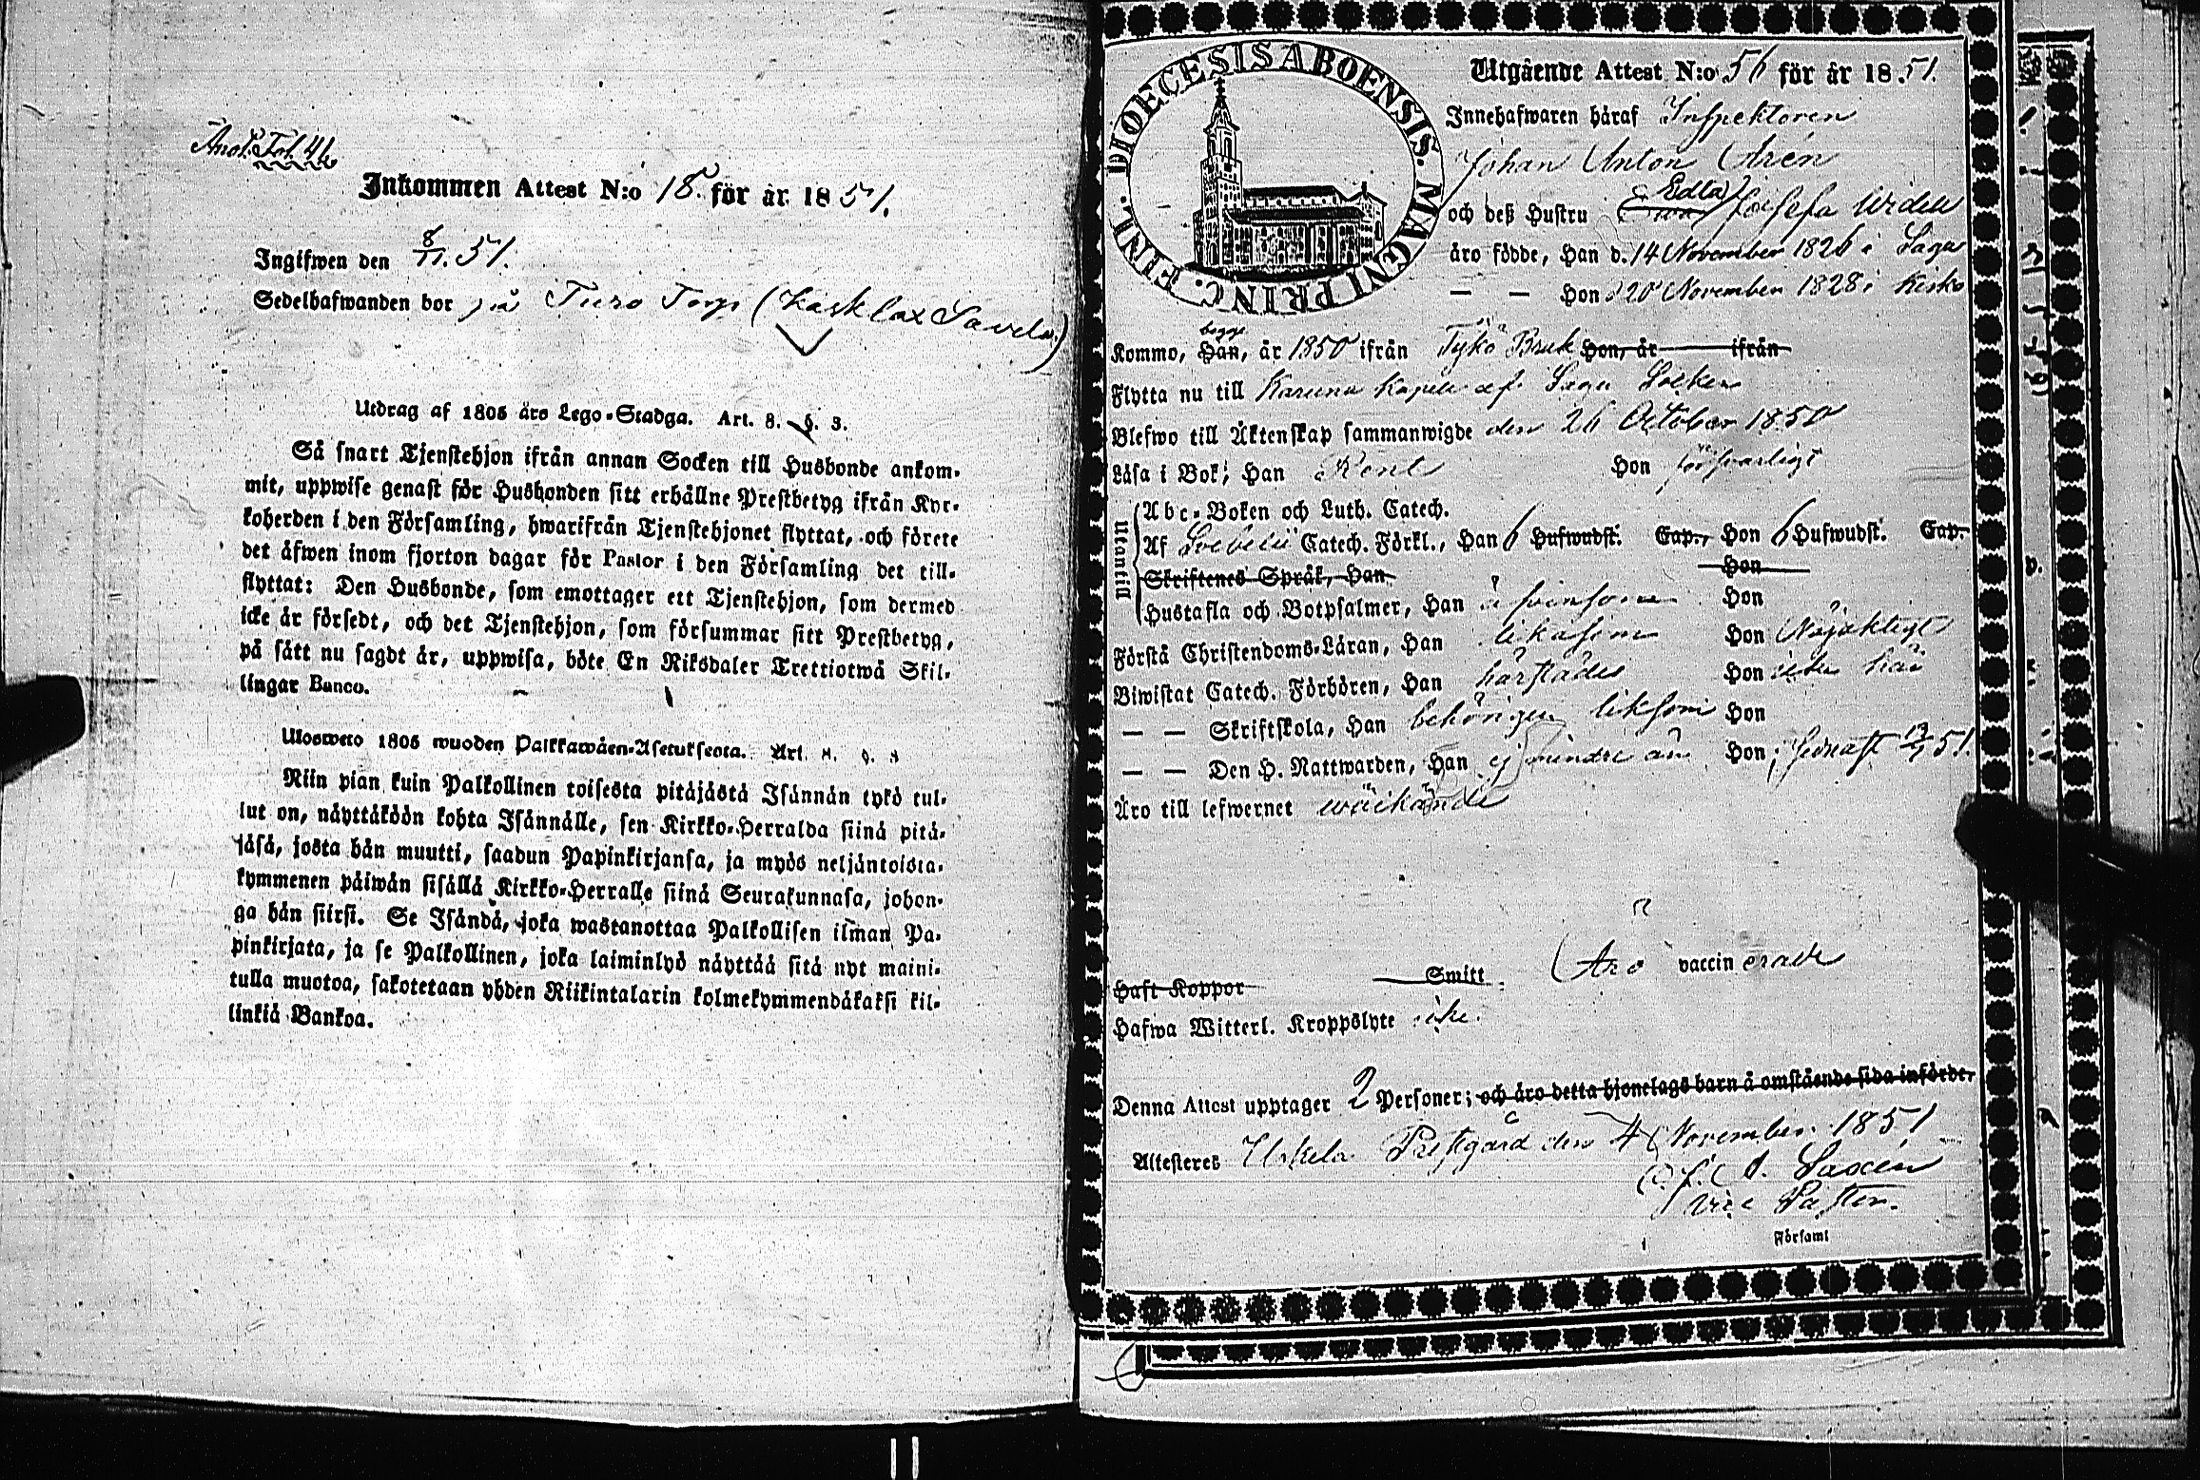 Anot. Fol. 46
Inkommen Attest N:o 18. för år 1851.
Ingifwen den 8/11. 51.
Sedelhafwanden bor på Turo Torp (Kasklax Savela)
Utdrag af 1805 års Lego-Stadga. Art. 8. §. 3.
Så snart Tjenstehjon ifrån annan Socken till Husbonde ankom-
mit, uppwise genast för Husbonden sitt erhållne Prestbetyg ifrån Kyr-
koherden i den Församling, hwarifrån Tjenstehjonet flyttat, och förete
det äfwen inom fjorton dagar för Pastor i den Församling det till-
flyttat: Den Husbonde, som emottager ett Tjenstehjon, som dermed
icke är försedt, och det Tjenstehjon, som försummar sitt Prestbetyg,
på sätt nu sagdt är, uppwisa, böte En Riksdaler Trettiotwå Skil-
lingar Banco.
Ulosweto 1805 wuoden Palkkawäen-Asetuksesta. Art. 8. §. 3
Niin pian kuin Palkollinen toisesta pitäjästä Isännän tykö tul-
lut on, näyttäköön kohta Isännälle, sen Kirkko-Herralda siinä pitä-
jäsä, josta hän muutti, saadun Papinkirjansa, ja myös neljäntoista-
kymmenen päiwän sisällä Kirkko-Herralle siinä Seurakunnasa, johon-
ga hän siirsi. Se Isändä, joka wastanottaa Palkollisen ilman Pa-
pinkirjata, ja se Palkollinen, joka laiminlyö näyttää sitä nyt maini-
tulla muotoa, sakotetaan yhden Riikintalarin kolmekymmendäkaksi kil-
linkiä Bankoa.
DIOECESIS ABOENSIS. MAGNI PRINC. FINL.
Utgående Attest N:o 56 för år 1851.
Innehafwaren häraf Inspektoren
Johan Anton Arén
Edla
och deß Hustru Eva Josefa Widell
äro födde, Han d. 14 November 1826 i Sagu
— — Hon d 20 November 1828 i Kisko
begge
Kommo, Han, år 1850 ifrån Tykö Bruk Hon, år ifrån
Flytta nu till Karuna Kapell af Sagu Socken
Blefwo till Äktenskap sammanwigde den 26 October 1850
Läsa i Bok; Han Rent Hon försvarligt
Utantill
Abc-Boken och Luth. Catech.
Af Svebelii Catech. Förkl., Han 6 Hufwudst. Cap., Hon 6 Hufwudst. Cap.
Skriftenes Språk, Han Hon
Hustafla och Botpsalmer, Han äfvensom Hon
Förstå Christendoms-Läran, Han likasom Hon Nöjaktigt
Biwistat Catech. Förhören, Han härstädes Hon
— — Skriftskola, Han behörigen liksom Hon
— — Den H. Nattwarden, Han ej mindre än Hon, senast 51.
Äro till lefwernet
Haft Koppor Smitt Äro vaccinerade
Hafwa Witterl. Kroppslyte icke.
Denna Attest upptager 2 Personer; och äro detta hjonelags barn å omstående sida införde,
Attesteres Uskela Prestgård den 4 November 1851
Saxén
Vice Pastor.
Församl